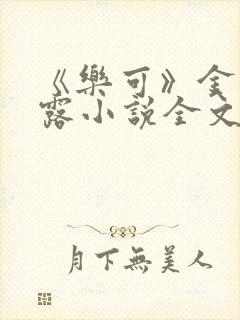 《樂可》金
露小說全文
月下無美人